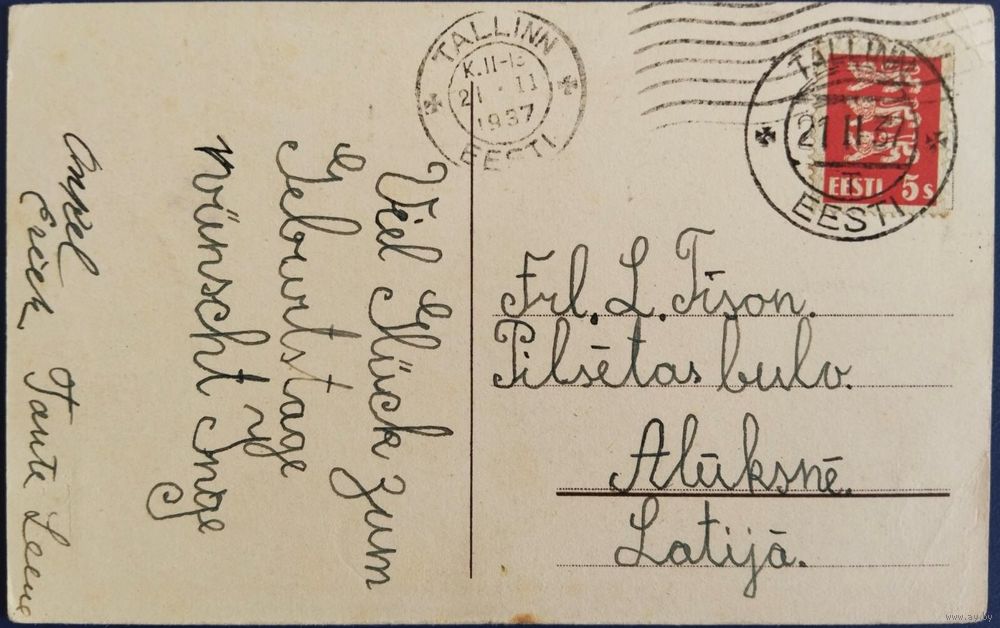 TALLINN
K.II-13
21 · II
1937
EESTI
TALLINN
21 II 37
T
EESTI
EESTI 5 s
Viel Glück zum
Geburtstage
wünscht Inge
Onkel
Erich, Tante Leene
Frl. L. Tison.
Pilsētas bulv.
Alūksnē.
Latijā.
www.ay.by